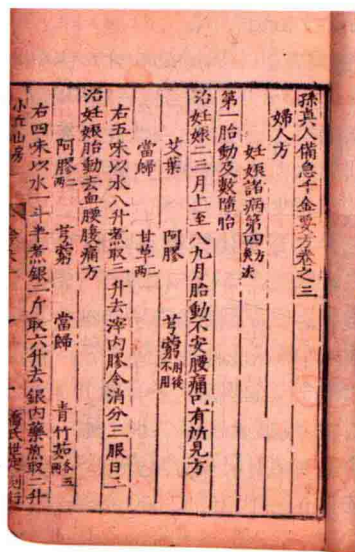 孫真人備急千金要方卷之三
婦人方
妊娠諸病第四 方 法
第一胎動及數墮胎
治妊娠二三月上至八九月胎動不安腰痛已有所見方
艾葉 阿膠 芎藭 肘後不用
當歸 甘草 兩二
右五味以水八升煮取三升去滓內膠令消分三服日三
治妊娠胎動去血腰腹痛方
阿膠 兩二 芎藭 當歸 青竹茹 各三兩
右四味以水一斗半煮銀二斤取六升去銀內藥煎取二升
小丘山房
喬氏世定刻行